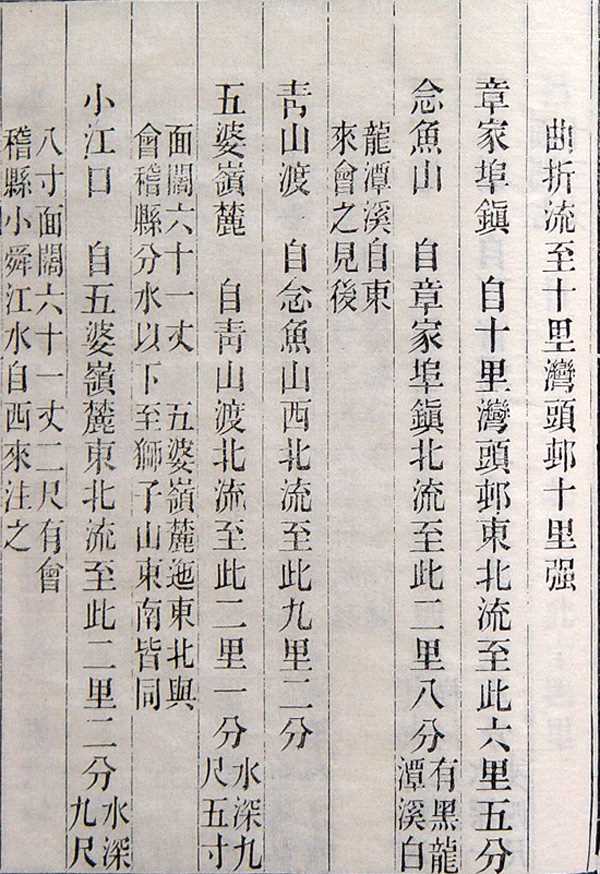 曲折流至十里灣頭邨十里强
章家埠鎮 自十里灣頭邨東北流至此六里五分
念魚山 自章家埠鎮北流至此二里八分
有黑龍
潭溪白
龍潭溪自東
來會之見後
靑山渡 自念魚山西北流至此九里二分
五婆嶺麓 自靑山渡北流至此二里一分
水深九
尺五寸
面闊六十一丈 五婆嶺麓迤東北與
會稽縣分水以下至獅子山東南皆同
小江口 自五婆嶺麓東北流至此二里二分
水深
九尺
八寸面闊六十一丈二尺有會
稽縣小舜江水自西來注之